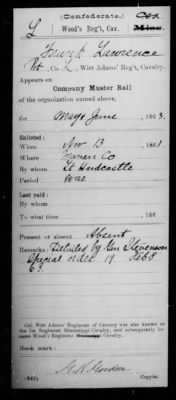 (Confederate.)
L Wood's Reg't, Cav. Miss.
Lawrence
Pvt, Co. L, Wirt Adams' Reg't, Cavalry.
Appears on
Company Muster Roll
of the organization named above,
for May & June, 1863.
Enlisted:
When Nov 13, 1861
Where Warren Co
By whom Lt
Period War
Last paid:
By whom
To what time , 186
Present or absent Absent
Remarks: Detailed by Gen Stevenson
Special order 19
63
Col. Wirt Adams' Regiment of Cavalry was also known as
the 1st Regiment Mississippi Cavalry, and subsequently be-
came Wood's Regiment Mississippi Cavalry.
Book mark:
(642)
Copyist.